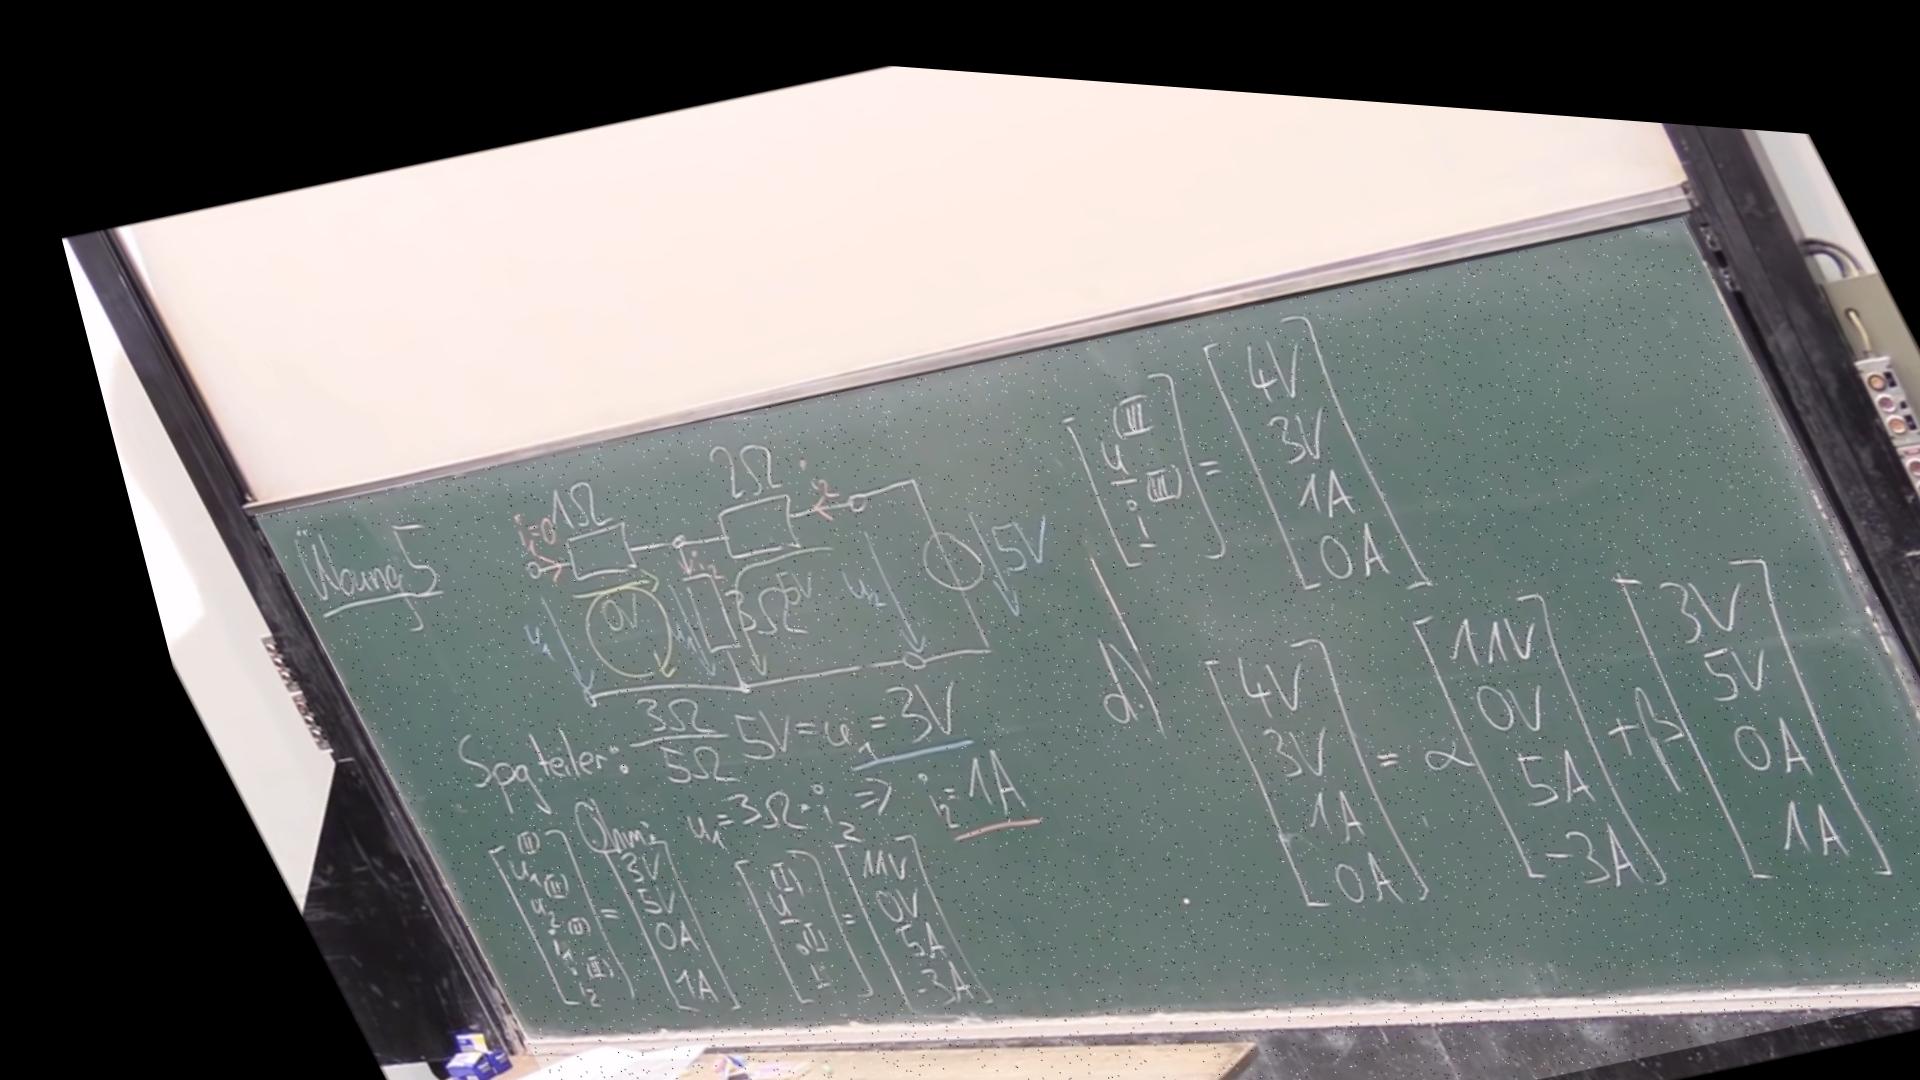 Übung 5
i=0 1Ω 2Ω i2
u1 0V u1 i2 3Ω 5V u2 5V
Spgteiler: 3Ω/5Ω 5V = u1 = 3V
Ohm: u1 = 3Ω · i2 => i2 = 1A
[u1(II) u2(II) i1(II) i2(II)] = [3V 5V 0A 1A]
[u(I) i(I)] = [11V 0V 5A -3A]
[u(III) i(III)] = [4V 3V 1A 0A]
d)
[4V 3V 1A 0A] = α [11V 0V 5A -3A] + β [3V 5V 0A 1A]